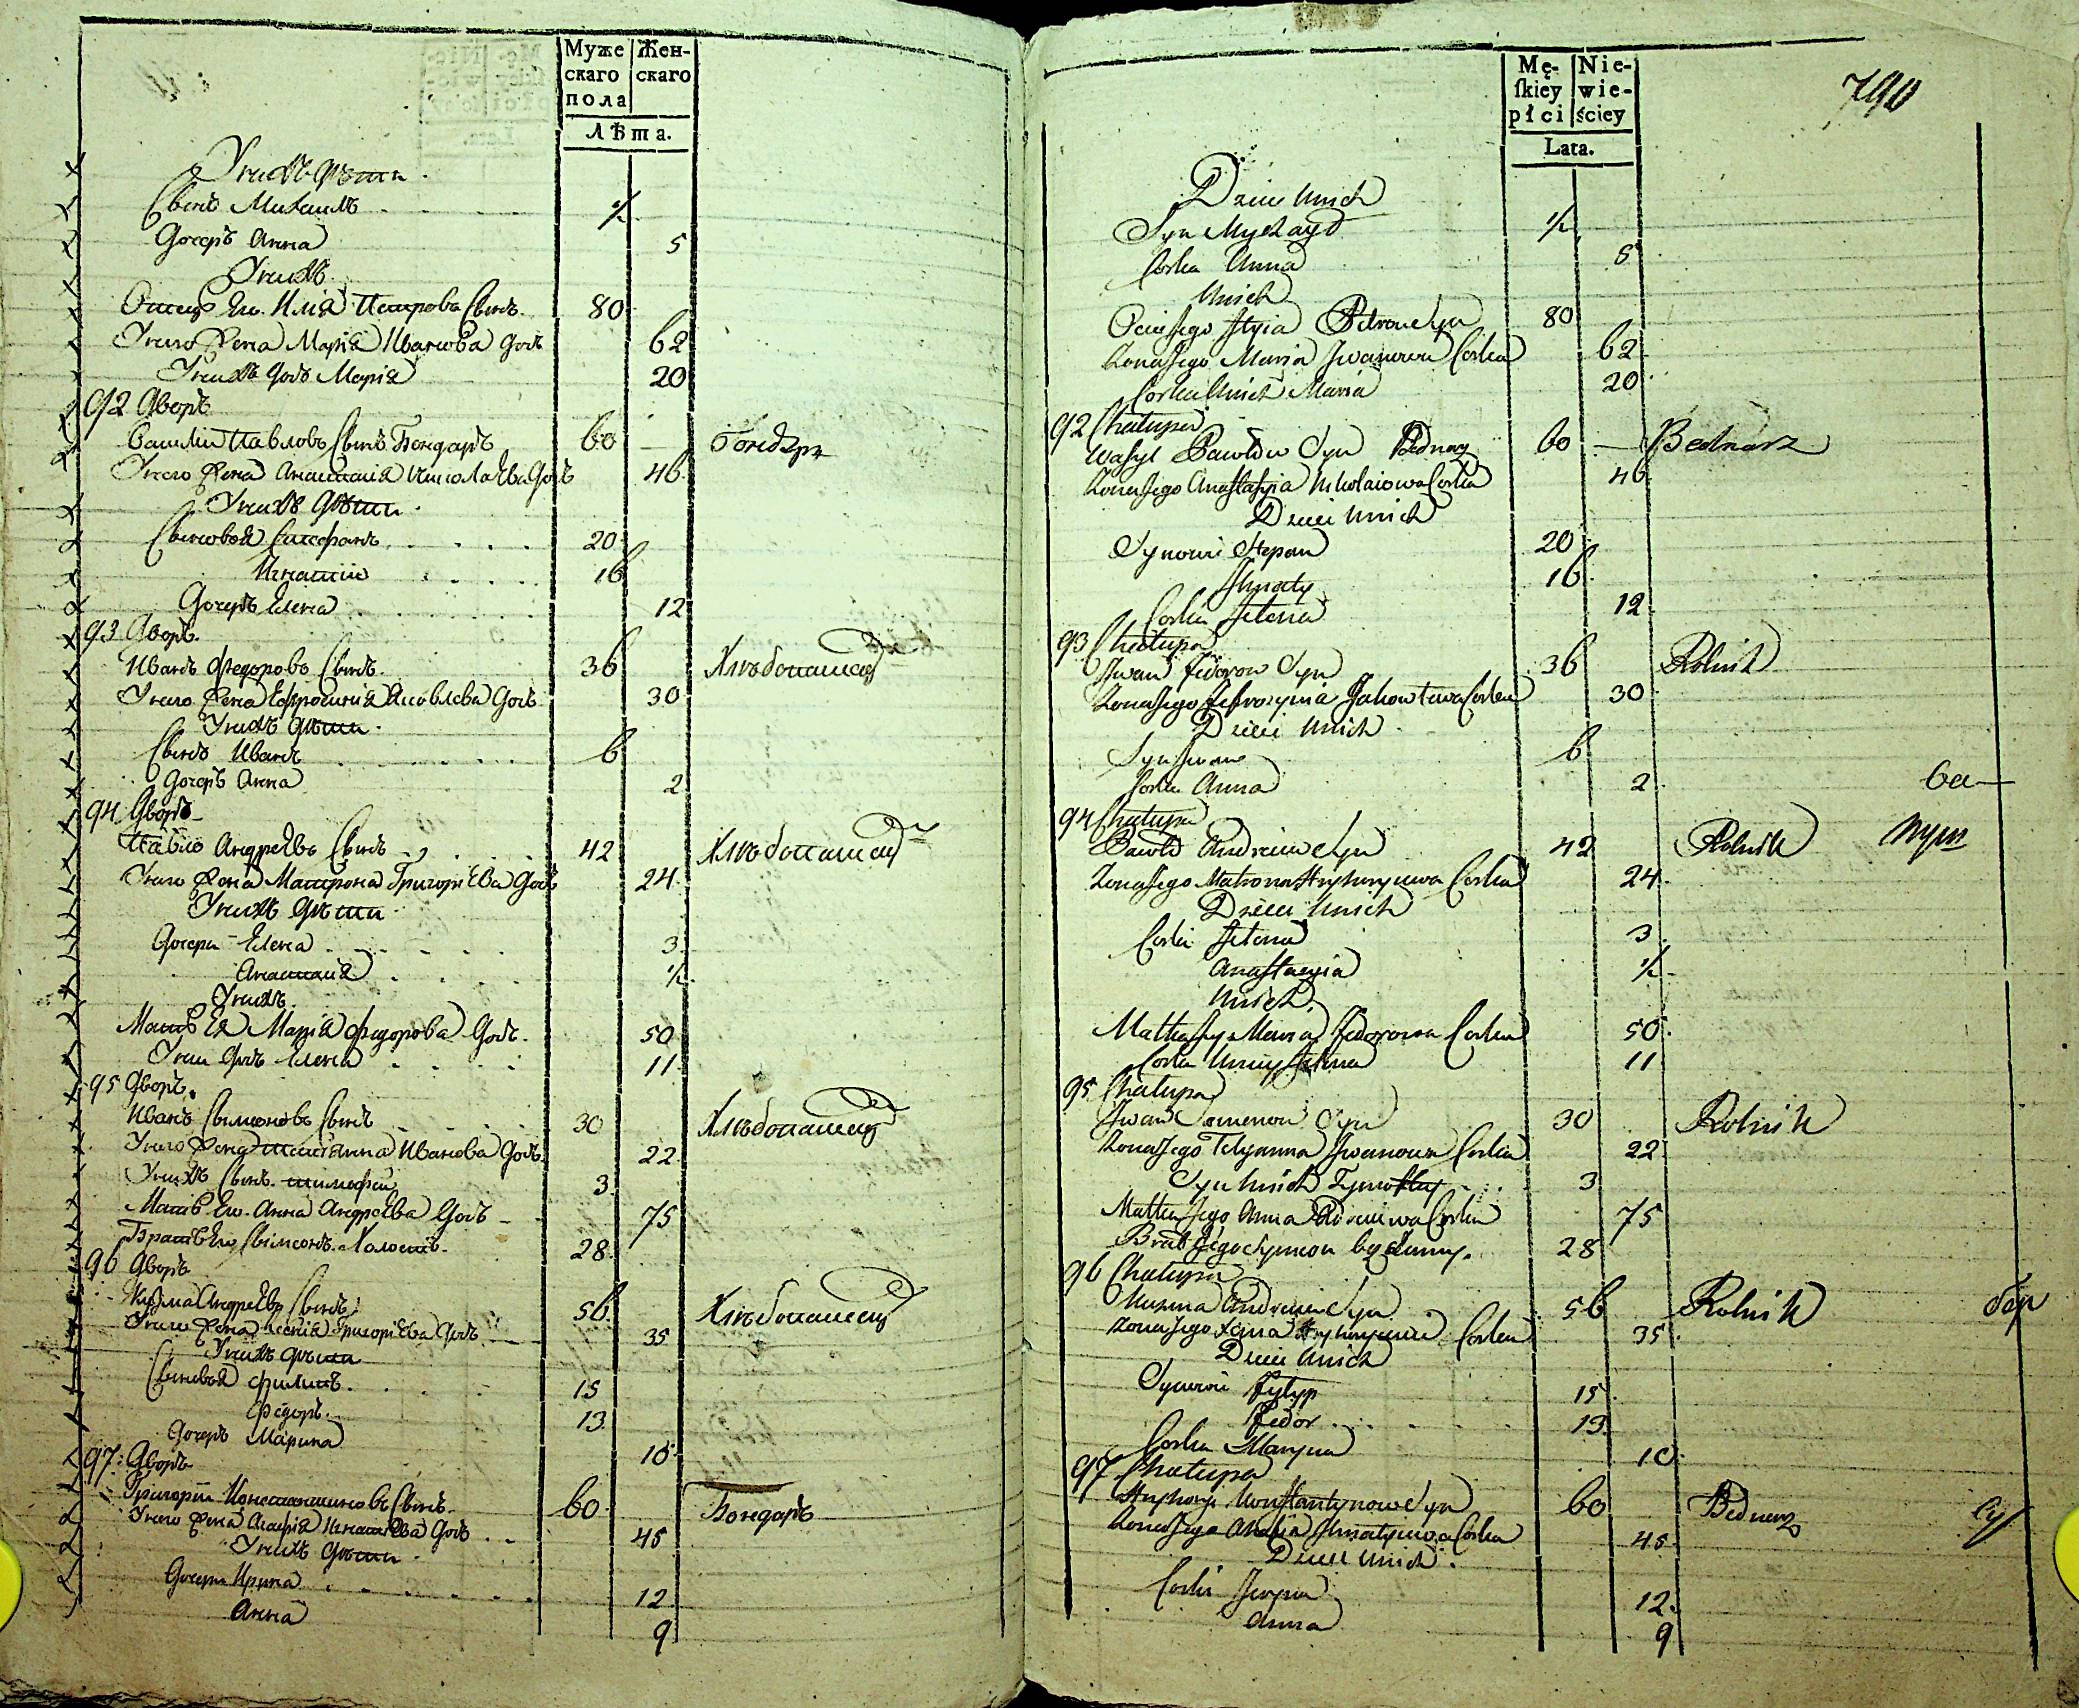 Муже Жен-
скаго скаго
пола
Лѣта.
У нихъ дѣти
Сынъ Михаилъ ½
Дочерь Анна 5
У нихъ
Отецъ Ег. Илiя Петровъ Сынъ 80
У него Жена Марiя Иванова Дочь 62
У нихъ дочь Марiя 20
92 Дворъ
Василiй Павловъ Сынъ Бондаръ 60 — бондарь
У него Жена Анастасiя Николаева Дочь 46
У нихъ дѣти
Сыновья Стефанъ 20
Игнатiй 16
Дочерь Елена 12
93 Дворъ
Иванъ Федоровъ Сынъ 36 Хлѣбопашецъ
У него Жена Ефросинiя Яковлева Дочь 30
У нихъ дѣти
Сынъ Иванъ 6
Дочерь Анна 2
94 Дворъ
Павло Андрѣевъ Сынъ 42 Хлѣбопашецъ
У него Жена Матрона Григорiева Дочь 24
У нихъ дѣти
Дочери Елена 3
Анастасiя ½
У нихъ
Мать Ея Марiя Федорова Дочь 50
У ней дочь Елена 11
95 Дворъ
Иванъ Сымоновъ Сынъ 30 Хлѣбопашецъ
У него Жена Татiанна Иванова Дочь 22
У нихъ Сынъ Тимофей 3
Мать Ег. Анна Андрѣева Дочь 75
Братъ Ег. Сымеонъ Холостъ 28
96 Дворъ
Кузма Андрѣевъ Сынъ 56 Хлѣбопашецъ
У него Жена Ксенiя Григорiева Дочь 35
У нихъ дѣти
Сыновья Филипъ 15
Федоръ 13
Дочерь Марина 10
97 Дворъ
Григорiй Константиновъ Сынъ 60 Бондаръ
У него Жена Агафiя Игнатiева Дочь 45
У нихъ дѣти
Дочери Ирина 12
Анна 9
Mę- Nie-
ſkiey wie-
płci ściey
Lata.
790
Dzieci Unich
Syn Mychayło ½
Corka Anna 5
Unich
Ociec Jego Jlyia Petrow Syn 80
Zona Jego Maria Jwanowa Corka 62
Corka Unich Maria 20
92 Chałupa
Wasyl Pawłow Syn Bednarz 60 — Bednarz
Zona Jego Anastasyia Mikołaiowa Corka 46
Dzieci Unich
Synowie Stepan 20
Jhnaty 16
Corka Jelena 12
93 Chałupa
Jwan Fedorow Syn 36 Rolnik
Zona Jego Jefrozynia Jakowlewa Corka 30
Dzieci Unich
Syn Jwan 6
Corka Anna 2
ва
94 Chałupa
Pawło Andreiew Syn 42 Rolnik
Zona Jego Matrona Hryhoryiewa Corka 24
Dzieci Unich
Corki Jelena 3
Anastazyia ½
Unich
Matka Jey Maria Fedorowa Corka 50
Corka Uniey Jelena 11
95 Chałupa
Jwan Semenow Syn 30 Rolnik
Zona Jego Tetyanna Jwanowa Corka 22
Syn Unich Tymofiey 3
Matka Jego Anna Andreiewa Corka 75
Brat Jego Symeon bezżenny 28
96 Chałupa
Kuzma Andreiew Syn 56 Rolnik
Zona Jego Xenia Hryhoryiewa Corka 35
Dzieci Unich
Synowie Fylyp 15
Fedor 13
Corka Maryna 10
97 Chałupa
Hryhory Konstantynow Syn 60 Bednarz
Zona Jego Ahafia Jhnatyiewa Corka 45
Dzieci Unich
Corki Jeryna 12
Anna 9